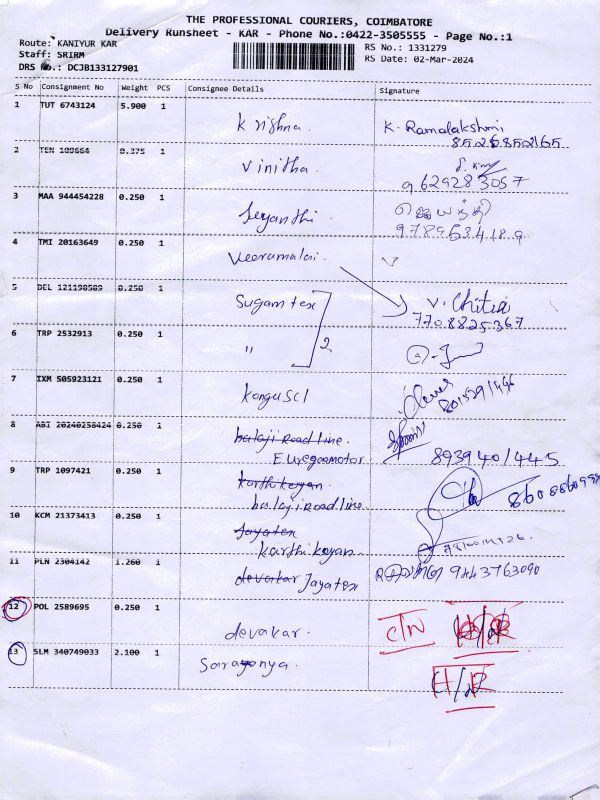 THE PROFESSIONAL COURIERS, COIMBATORE
Delivery Runsheet - KAR - Phone No.:0422-3505555 - Page No.:1
Route: KANIYUR KAR
RS No.: 1331279
Staff: SRIRM
RS Date: 02-Mar-2024
DRS No.: DCJB133127901
S No Consignment No Weight PCS Consignee Details Signature
1 TUT 6743124 5.900 1
Krishna. K. Ramalakshmi
8526852165
2 TEN 109664 0.375 1
Vinitha.
9629283057
3 MAA 944454228 0.250 1
Jeyanthi. ஜெயந்தி
9789534189
4 TMI 20163649 0.250 1
Veeramalai.
5 DEL 121198589 0.250 1
Sugam tex V. Chitra
7708825367
6 TRP 2532913 0.250 1
" 2
7 IXM 505923121 0.250 1
kongu scl
8 ABI 20240258424 0.250 1
balaji Road line.
Euregoomotor 8939401445
9 TRP 1097421 0.250 1
karthikeyan.
balaji Road line
10 KCM 21373413 0.250 1
Jayatex
karthikeyan
11 PLN 2304142 1.260 1
devakar Jayatex 9443763090
12 POL 2589695 0.250 1
devakar. C/N
13 SLM 340749033 2.100 1
Saranya.